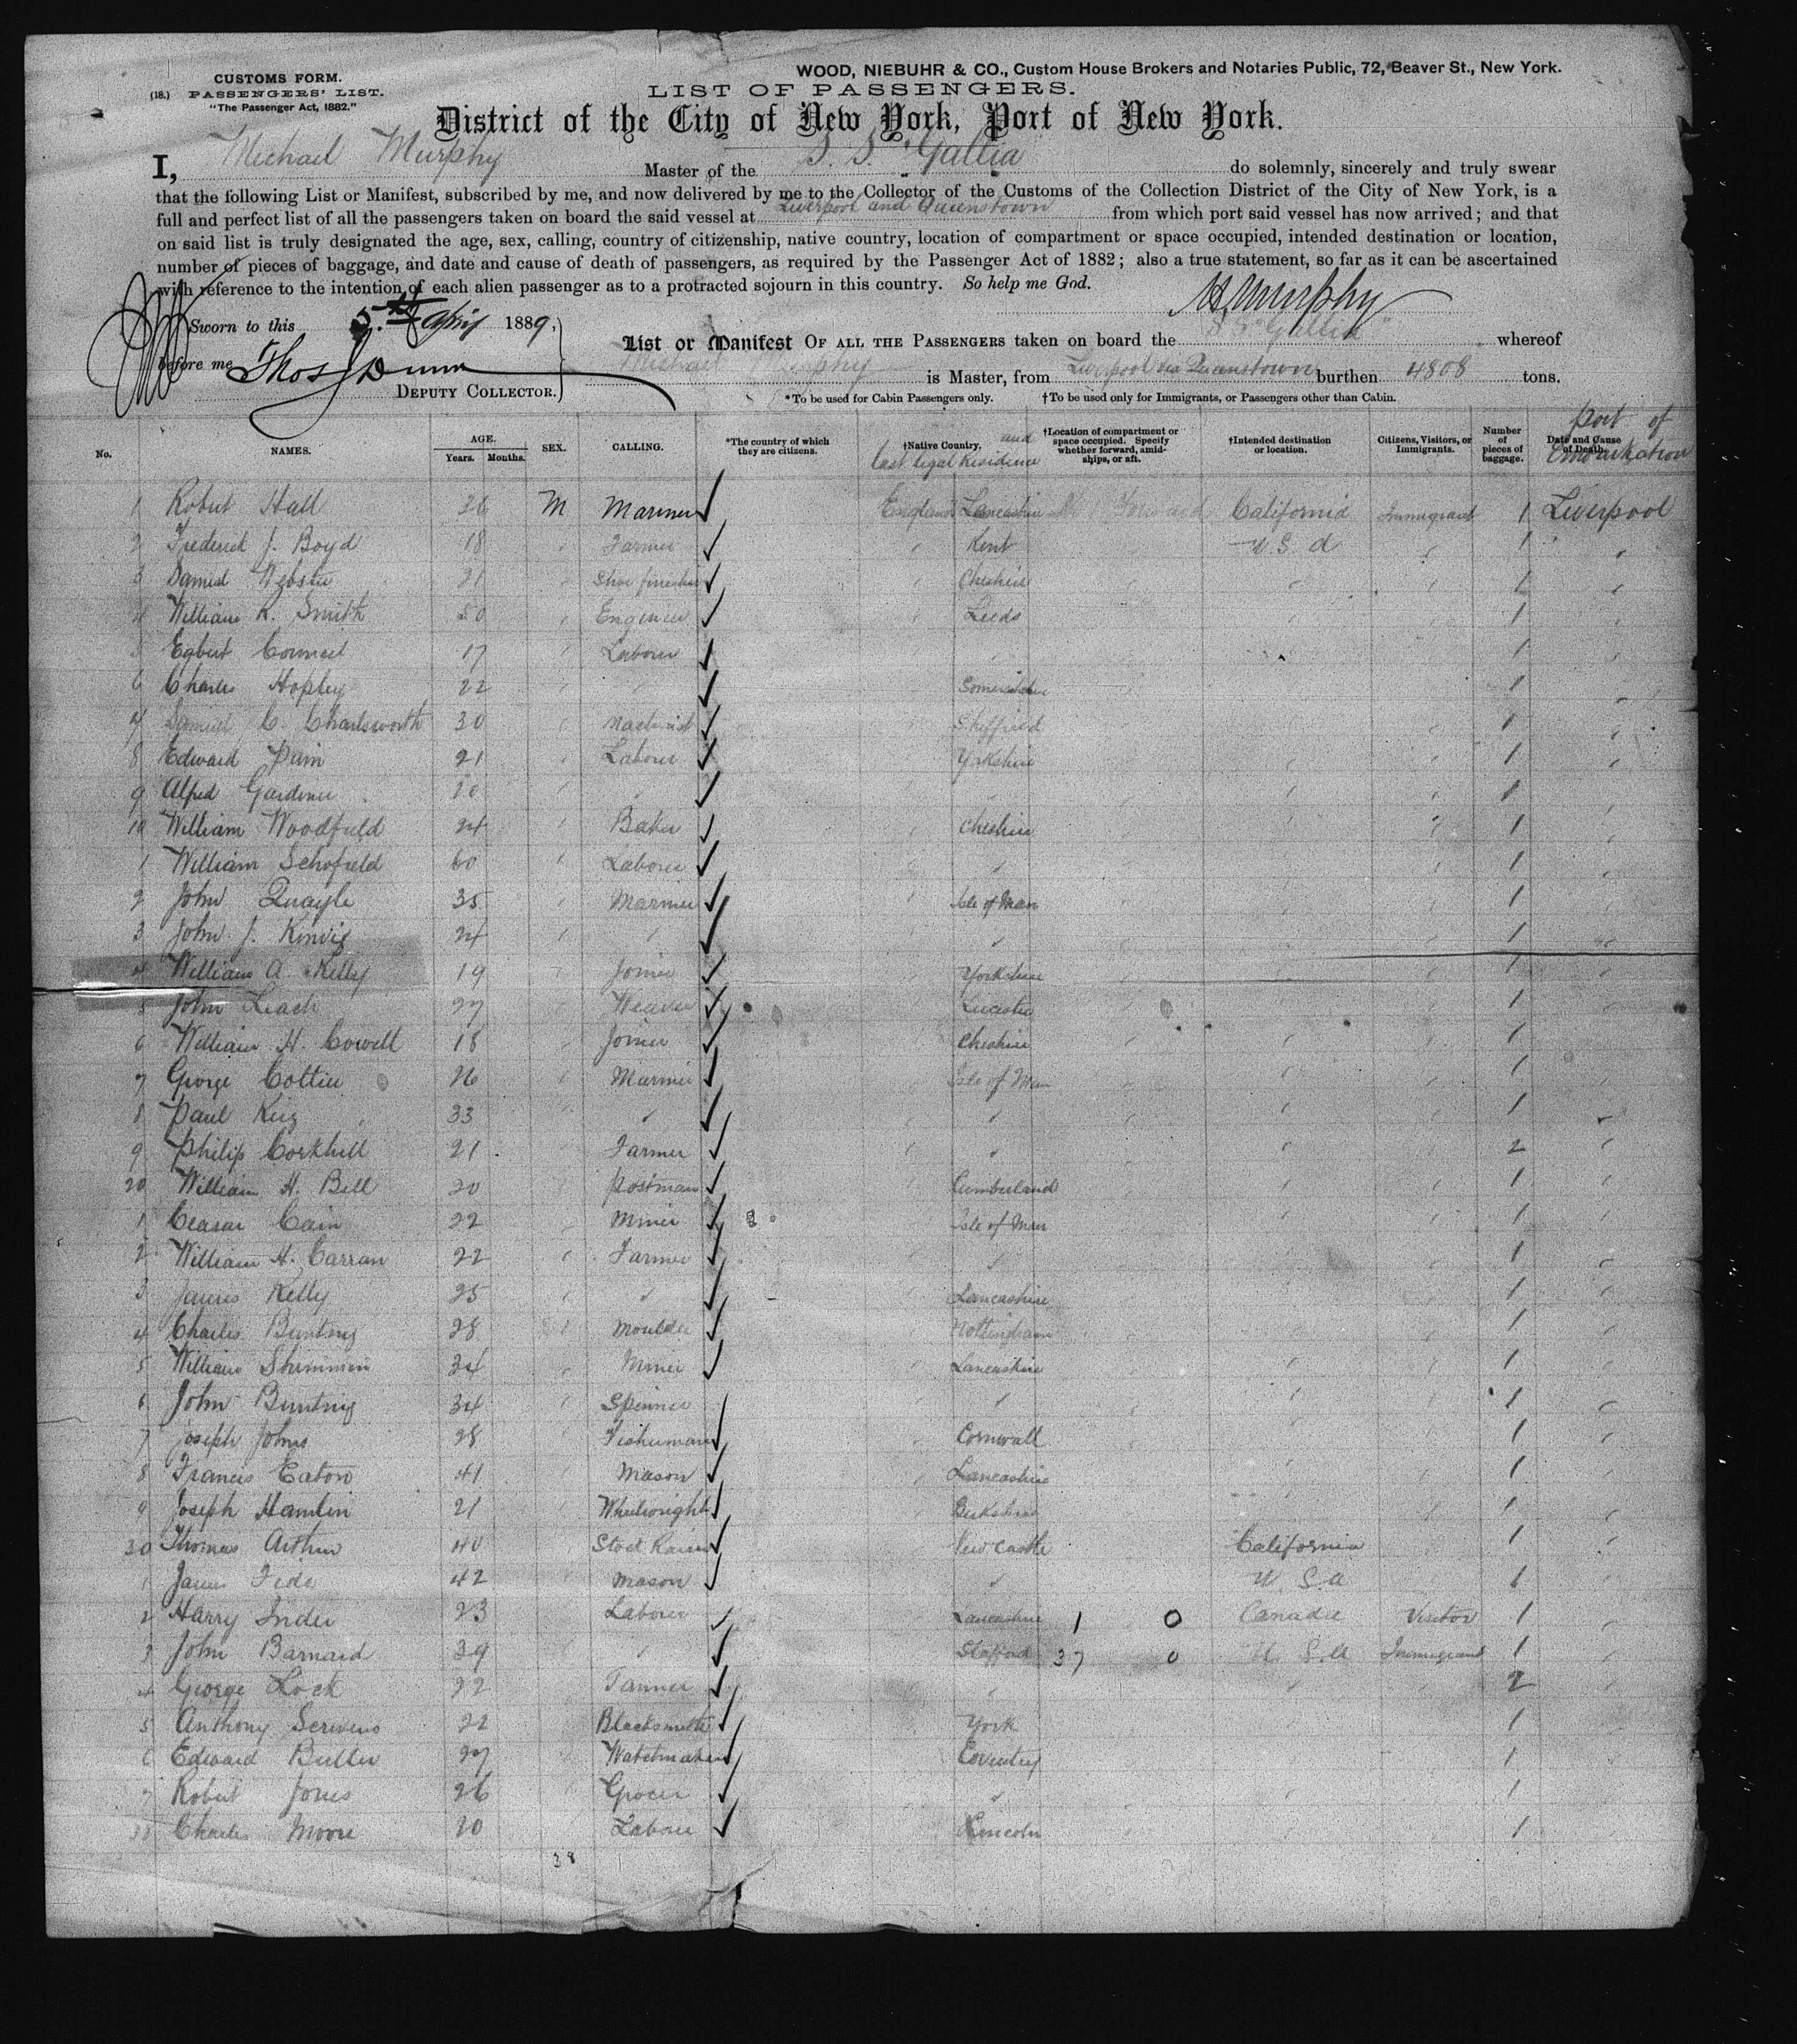 CUSTOMS FORM.
(18.) PASSENGERS' LIST.
"The Passenger Act, 1882."
WOOD, NIEBUHR & CO., Custom House Brokers and Notaries Public, 72, Beaver St., New York.
LIST OF PASSENGERS.
District of the City of New York, Port of New York.
I, Michael Murphy Master of the S. S. "Gallia do solemnly, sincerely and truly swear
that the following List or Manifest, subscribed by me, and now delivered by me to the Collector of the Customs of the Collection District of the City of New York, is a
full and perfect list of all the passengers taken on board the said vessel at Liverpool and Queenstown from which port said vessel has now arrived; and that
on said list is truly designated the age, sex, calling, country of citizenship, native country, location of compartment or space occupied, intended destination or location,
number of pieces of baggage, and date and cause of death of passengers, as required by the Passenger Act of 1882; also a true statement, so far as it can be ascertained
with reference to the intention of each alien passenger as to a protracted sojourn in this country. So help me God.
M. Murphy
Sworn to this 5th April 1889,
before me Thos J Dunn
DEPUTY COLLECTOR.
List or Manifest OF ALL THE PASSENGERS taken on board the S. S. "Gallia" whereof
Michael Murphy is Master, from Liverpool via Queenstown burthen 4808 tons.
*To be used for Cabin Passengers only. †To be used only for Immigrants, or Passengers other than Cabin.
No. NAMES. AGE. Years. Months. SEX. CALLING. *The country of which they are citizens. †Native Country, and last legal Residence †Location of compartment or space occupied. Specify whether forward, amidships, or aft. †Intended destination or location. Citizens, Visitors, or Immigrants. Number of pieces of baggage. Date and Cause of Death. Port of Embarkation
1 Robert Hall 26 M Mariner England Lancashire Forward California Immigrant 1 Liverpool
2 Frederick J. Boyd 18 Farmer Kent U.S.A 1
3 Daniel Webster 21 Shoe finisher Cheshire 1
4 William R. Smith Engineer Leeds 1
5 Egbert Council 17 Laborer 1
6 Charles Hopley 22 " Somersetshire 1
7 Samuel C. Charlesworth 30 Machinist Sheffield 1
8 Edward Pain 21 Laborer Yorkshire 1
9 Alfred Gardener 20 " 1
10 William Woodfield 24 Baker Cheshire 1
1 William Schofield 60 Laborer " 1
2 John Quayle 35 Mariner Isle of Man 1
3 John J. Kinvig 24 " " 1
4 William A. Kelly 19 Joiner Yorkshire 1
5 John Leach 27 Weaver Leicester 1
6 William H. Cowell 18 Joiner Cheshire 1
7 George Cottier 26 Mariner Isle of Man 1
8 Paul 33 " " 1
9 Philip Corkhill 21 Farmer " 2
20 William H. Bell 20 Postman Cumberland 1
1 Ceasar Cain 22 Miner Isle of Man 1
2 William H. Carran 22 Farmer " 1
3 James Kelly 25 " Lancashire 1
4 Charles Bunting 28 Moulder Nottingham 1
5 William Shimmin 34 Miner Lancashire 1
6 John Bunting 34 Spinner " 1
7 Joseph Johns 28 Fisherman Cornwall 1
8 Francis Eaton 41 Mason Lancashire 1
9 Joseph Hamlin 21 Wheelwright Berkshire 1
30 Thomas Arthur 40 Stock Raiser Newcastle California 1
1 James 42 Mason " U.S.A 1
2 Harry Inder 23 Laborer Lancashire 1 0 Canada Visitor 1
3 John Barnard 39 " Stafford 37 0 U.S.A Immigrant 1
4 George Lock 22 " 2
5 Anthony Scrivens 22 Blacksmith York 1
6 Edward Butler 27 Watchmaker Coventry 1
7 Robert Jones 26 Grocer " 1
38 Charles Moore 20 Laborer Lincoln 1
38